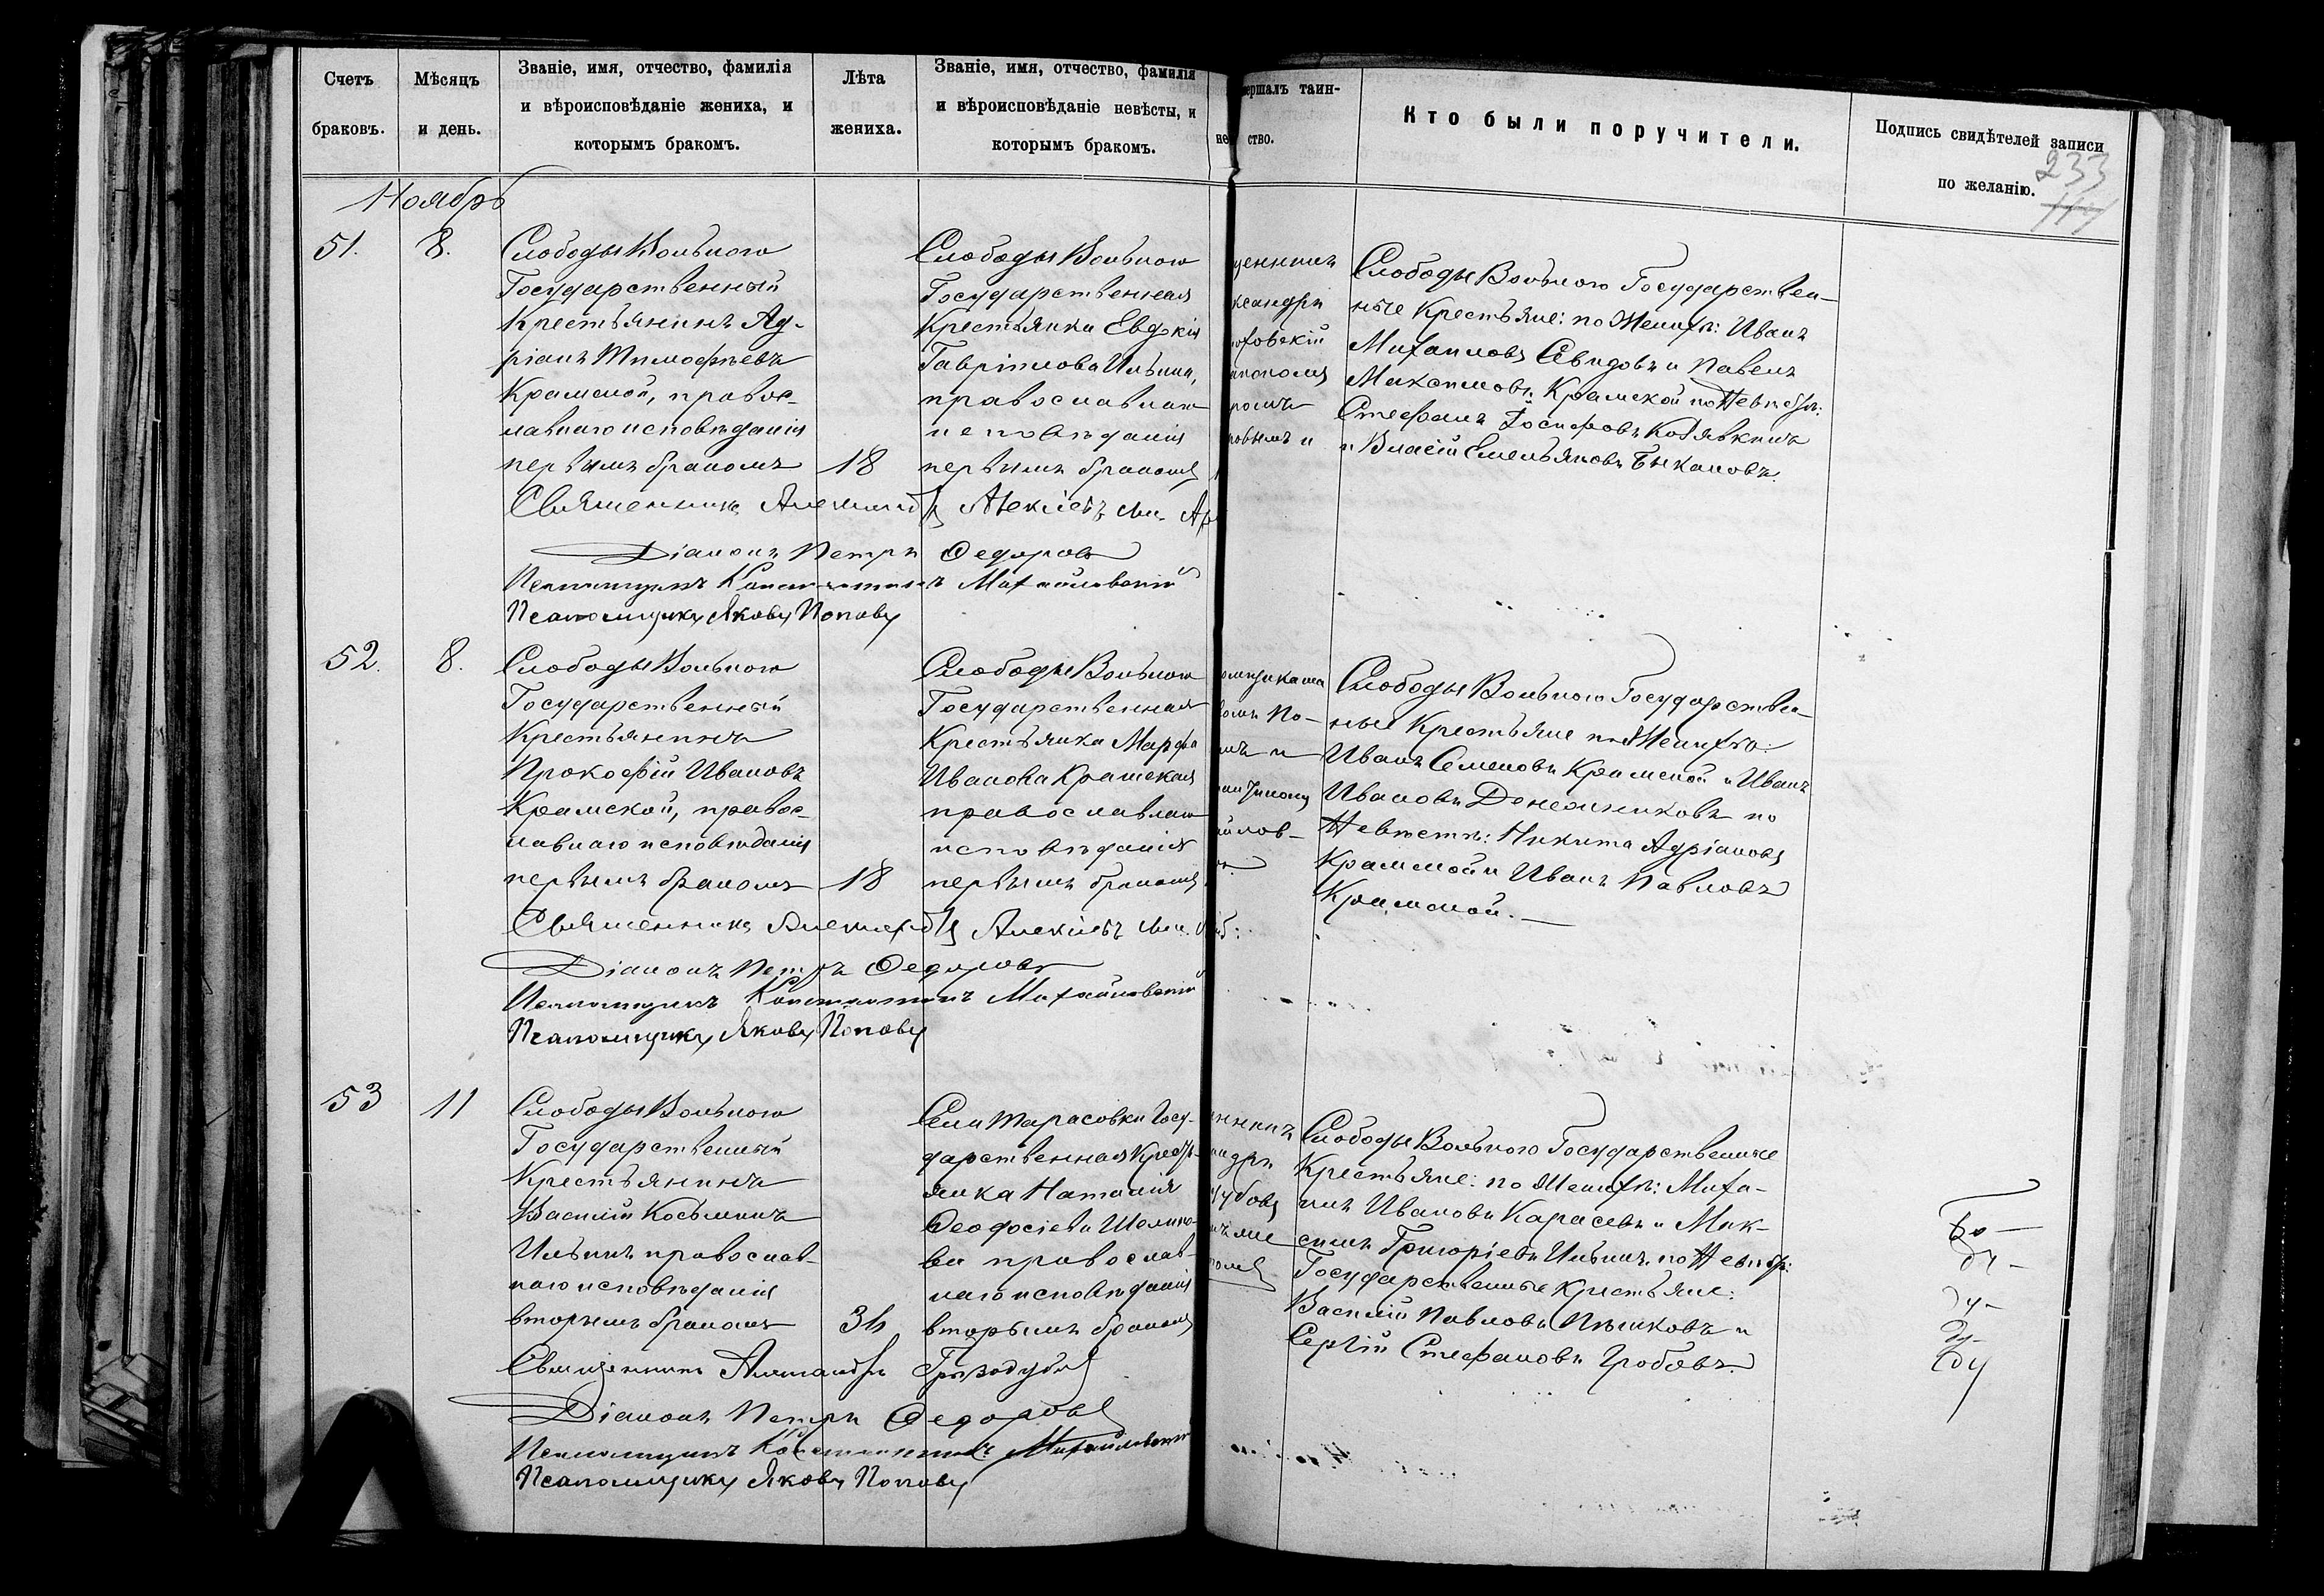 Счетъ
браковъ.
Мѣсяцъ
и день.
Званіе, имя, отчество, фамилія
и вѣроисповѣданіе жениха, и
которымъ бракомъ.
Лѣта
жениха.
Званіе, имя, отчество, фамилія
и вѣроисповѣданіе невѣсты, и
которымъ бракомъ.
вершалъ таин-
ство.
Кто были поручители.
Подпись свидѣтелей записи
по желанію.
233
Ноябрь
51.
8.
Слободы Вольнаго
Государственный
Крестьянинъ Ад-
ріанъ Тимофѣевъ
Крамской, правос-
лавнаго исповѣданія
первымъ бракомъ
18
Слободы Вольнаго
Государственная
Крестьянка Евдокія
Гавріилова Ильина,
православнаго
исповѣданія
первымъ бракомъ
Слободы Вольнаго Государствен-
ные Крестьяне: по Женихѣ: Иванъ
Михаиловъ Севидовъ и Павелъ
Максимовъ Крамской по Невѣстѣ:
Стефанъ Іосифовъ Кодявкинъ
и Власій Емельяновъ Быкановъ.
Священникъ Александръ Алексіевъ
Діаконъ Петръ Федоровъ
Псаломщикъ Константинъ Михайловскій
Псаломщикъ Яковъ Поповъ
52.
8.
Слободы Вольнаго
Государственный
Крестьянинъ
Прокофій Ивановъ
Крамской, правос-
лавнаго исповѣданія
первымъ бракомъ
18
Слободы Вольнаго
Государственная
Крестьянка Марфа
Иванова Крамская
православнаго
исповѣданія
первымъ бракомъ
Слободы Вольнаго Государствен-
ные Крестьяне по Женихѣ:
Иванъ Семеновъ Крамской и Иванъ
Ивановъ Денежниковъ по
Невѣстѣ: Никита Адріановъ
Крамской и Иванъ Павловъ
Крамской.
Священникъ Александръ Алексіевъ
Діаконъ Петръ Федоровъ
Псаломщикъ Константинъ Михайловскій
Псаломщикъ Яковъ Поповъ
53
11
Слободы Вольнаго
Государственный
Крестьянинъ
Василій Косьминъ
Ильинъ православ-
наго исповѣданія
вторымъ бракомъ
34
Села Тарасовки Госу-
дарственная Кресть-
янка Наталія
Феодосіева
ва православ-
наго исповѣданія
вторымъ бракомъ
Слободы Вольнаго Государственные
Крестьяне: по Женихѣ: Миха-
илъ Ивановъ Карасевъ и Мак-
симъ Григоріевъ Ильинъ по Невѣстѣ:
Государственные Крестьяне:
Василій Павловъ Пѣшковъ и
Сергій Стефановъ Гробовъ.
Священникъ Александръ Гризодубовъ
Діаконъ Петръ Федоровъ
Псаломщикъ Константинъ Михайловскій
Псаломщикъ Яковъ Поповъ